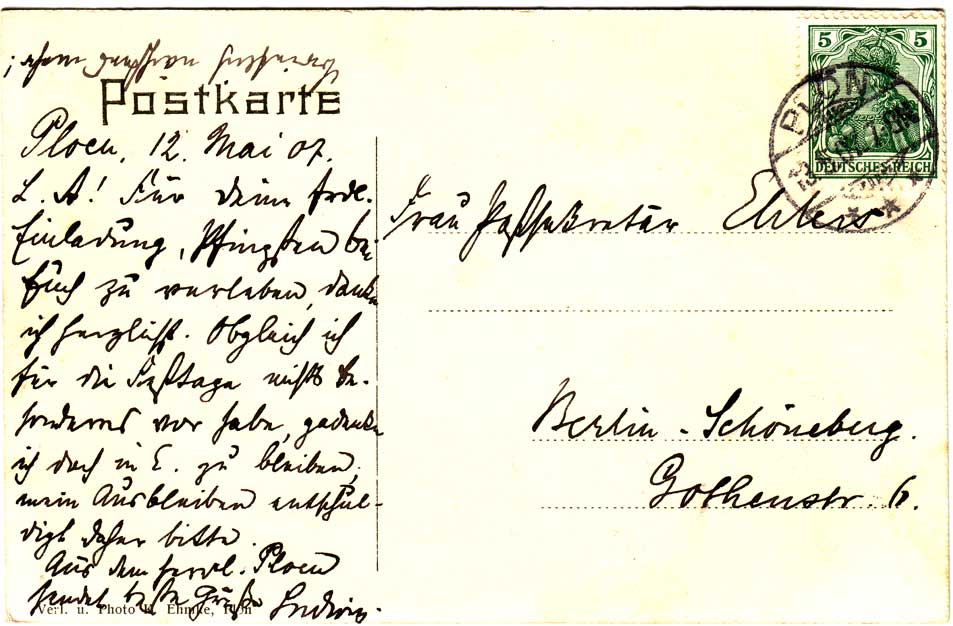 Postkarte
Ploen, 12. Mai 07.
L. A! Für Deine frdl.
Einladung, Pfingsten bei
Euch zu verleben, danke
ich herzlichst. Obgleich ich
für die Festtage nichts be-
sonderes vor habe, gedenke
ich doch in E. zu bleiben,
mein Ausbleiben entschul-
digt daher bitte.
Aus dem herrl. Ploen
sendet beste Grüße Ludwig.
Verl. u. Photo Ehmke, Plön
5 5
DEUTSCHES REICH
PLÖN
Frau Postsekretär Ehlers
Berlin-Schöneberg.
Gothenstr. 6.